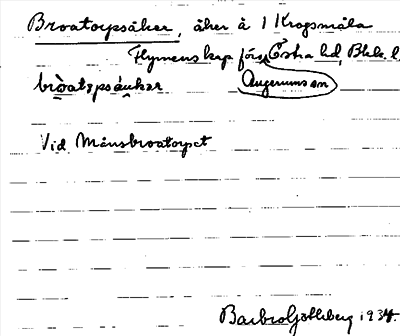 Broatorpsåker, åker å 1 Krogsmåla
Flymens kap förs. Östra hd, Blek. l
Augerums sn
Vid Månsbroatorpet
Barbro Gölleberg 1934.